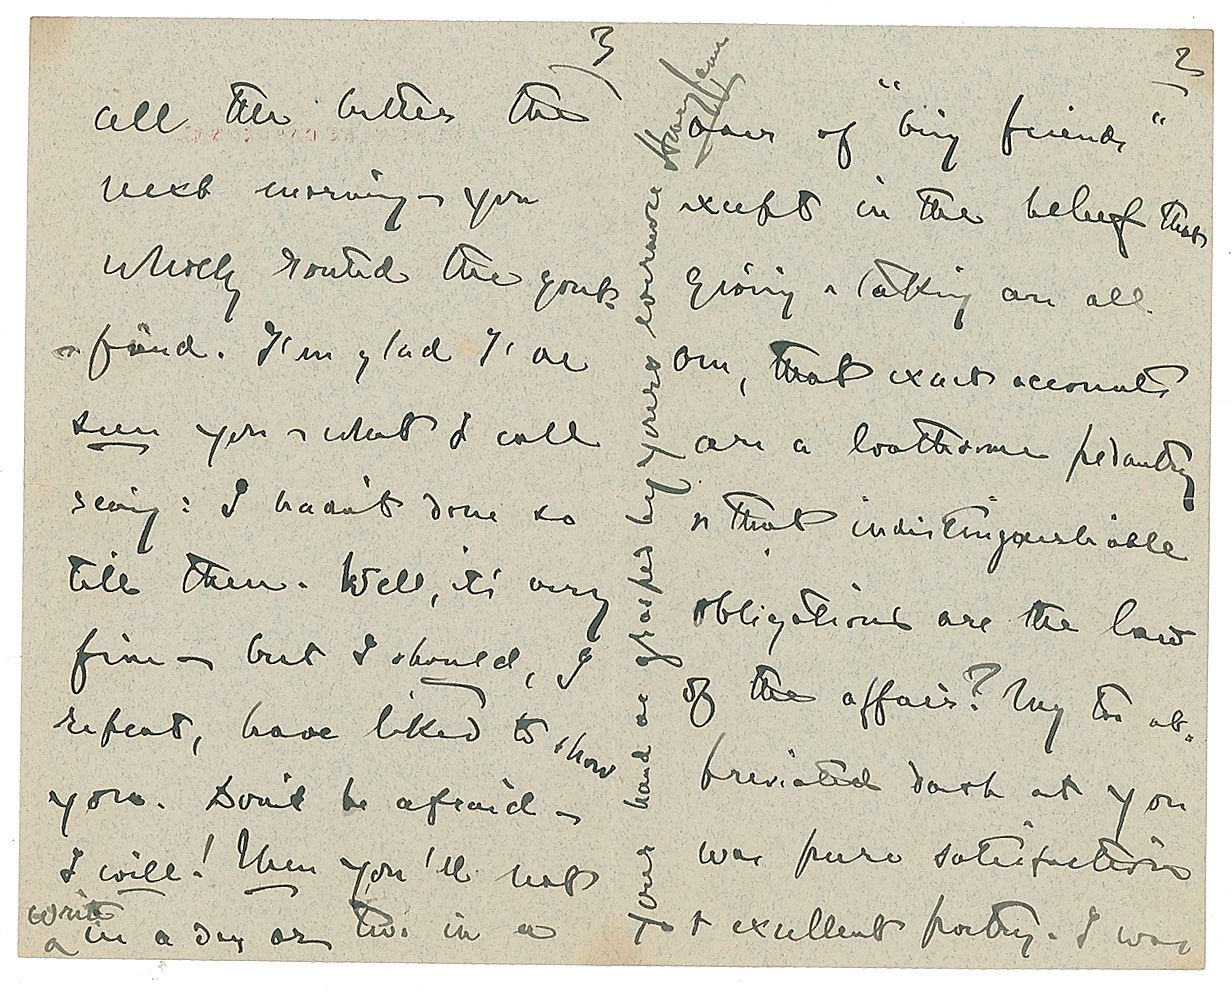 2
ours of "being friends"
except in the belief that
giving & taking are all
one, that exact accounts
are a loathsome pedantry
& that indistinguishable
obligations are the law
of the affair? My too ab-
breviated dash at you
was pure satisfaction
& excellent poetry. I was
3
all the better the
next morning – you
wholly routed the gout-
fiend. I'm glad I've
seen you – what I call
seeing: I hadn't done so
till then. Well, it's very
fine – but I should, I
repeat, have liked to show
you. Don't be afraid –
I will! Then you'll not
write
in a day or two in a
Your hand as grasped by yours evermore
Henry James